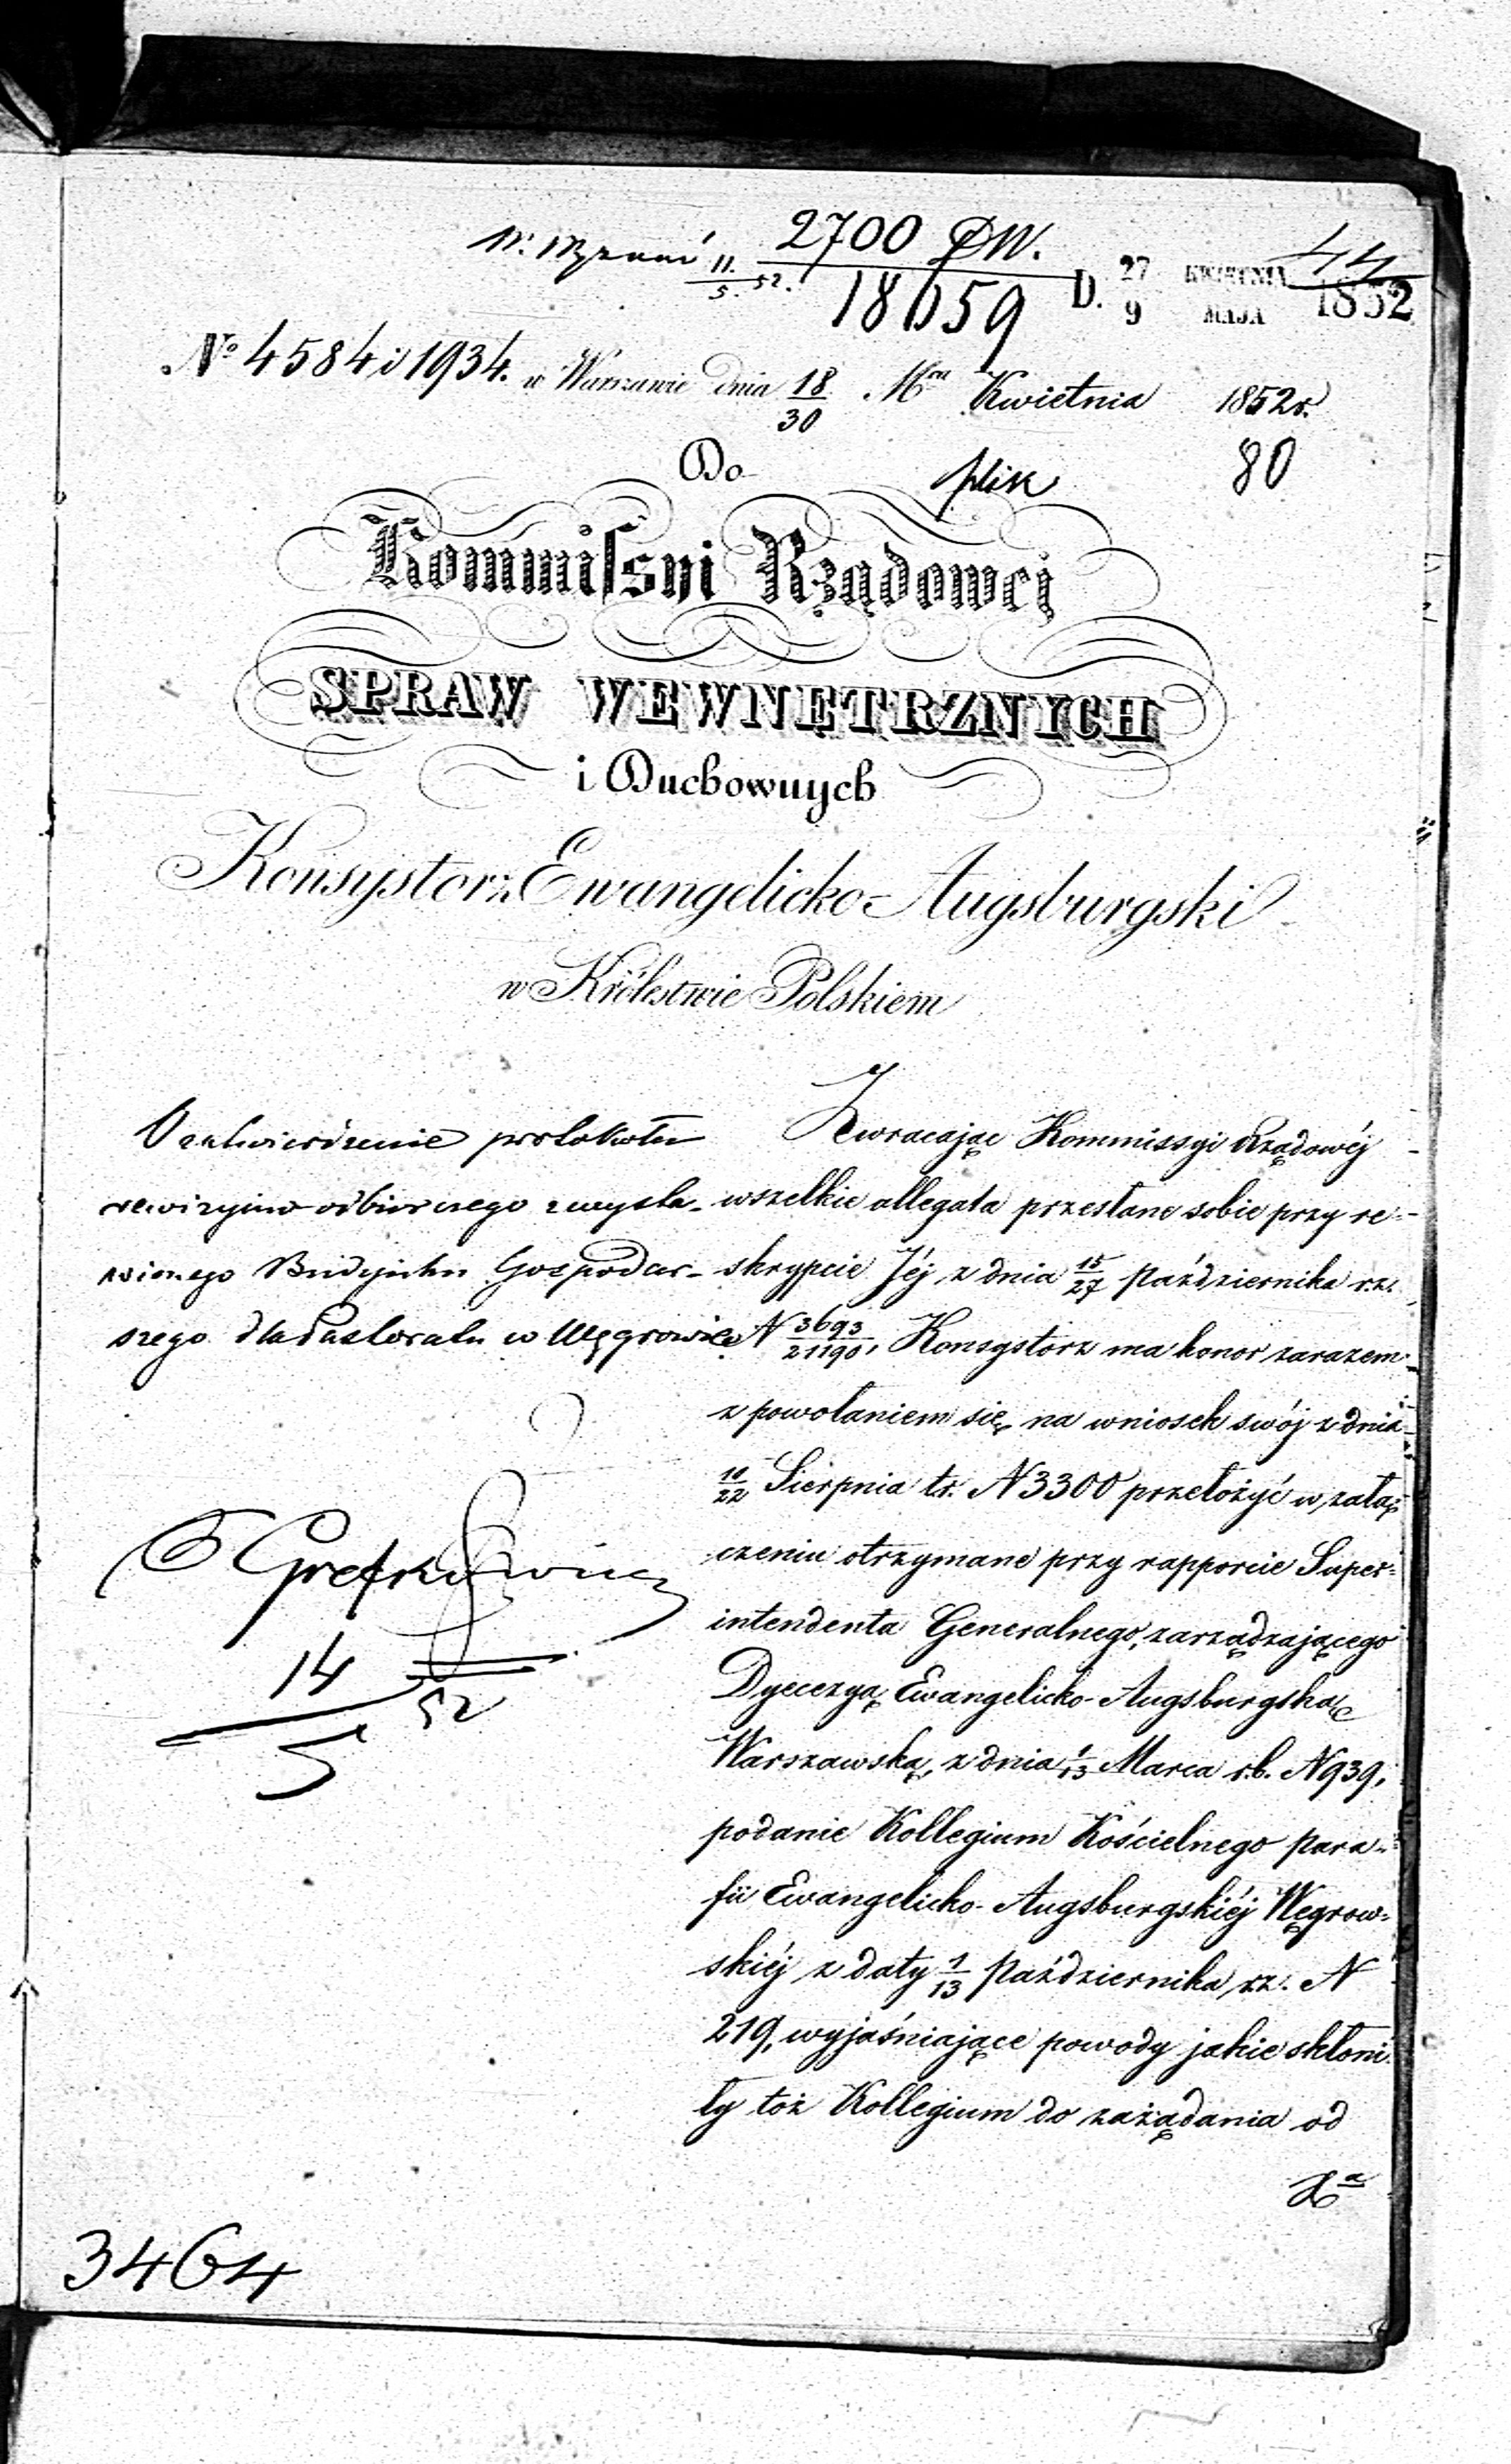 2700 DW.
18059
11.
5. 52.
D. 27 KWIETNIA
9 MAJA 1852
44
No 4584 i 1934. w Warszawie dnia 18/30 Mca Kwietnia 1852 r.
Do
plik 80
Kommissyi Rządowej
SPRAW WEWNĘTRZNYCH
i Duchownych
Konsystorz Ewangelicko-Augsburgski
w Królestwie Polskiem
O zatwierdzenie protokółu
rewizyjno odbiorczego z wysta-
wionego Budynku Gospodar-
szego dla Pastoratu w Węgrowie
14
5 52
Zwracając Kommissyi Rządowéj
wszelkie allegata przesłane sobie przy re-
skrypcie Jéj z dnia 15/27 Października r.z.
N 3693/21190, Konsystorz ma honor zarazem
z powołaniem się na wniosek swój z dnia
10/22 Sierpnia t.r. N 3300 przełożyć w załą-
czeniu otrzymane przy rapporcie Super-
intendenta Generalnego, zarządzającego
Dyecezyą Ewangelicko-Augsburgską
Warszawską, z dnia 1/13 Marca r.b. N 939,
podanie Kollegium Kościelnego para-
fii Ewangelicko-Augsburgskiéj Węgrow-
skiéj z daty 1/13 Października r.z. N
219, wyjaśniające powody jakie skłoni-
ły toż Kollegium do zażądania od
3464